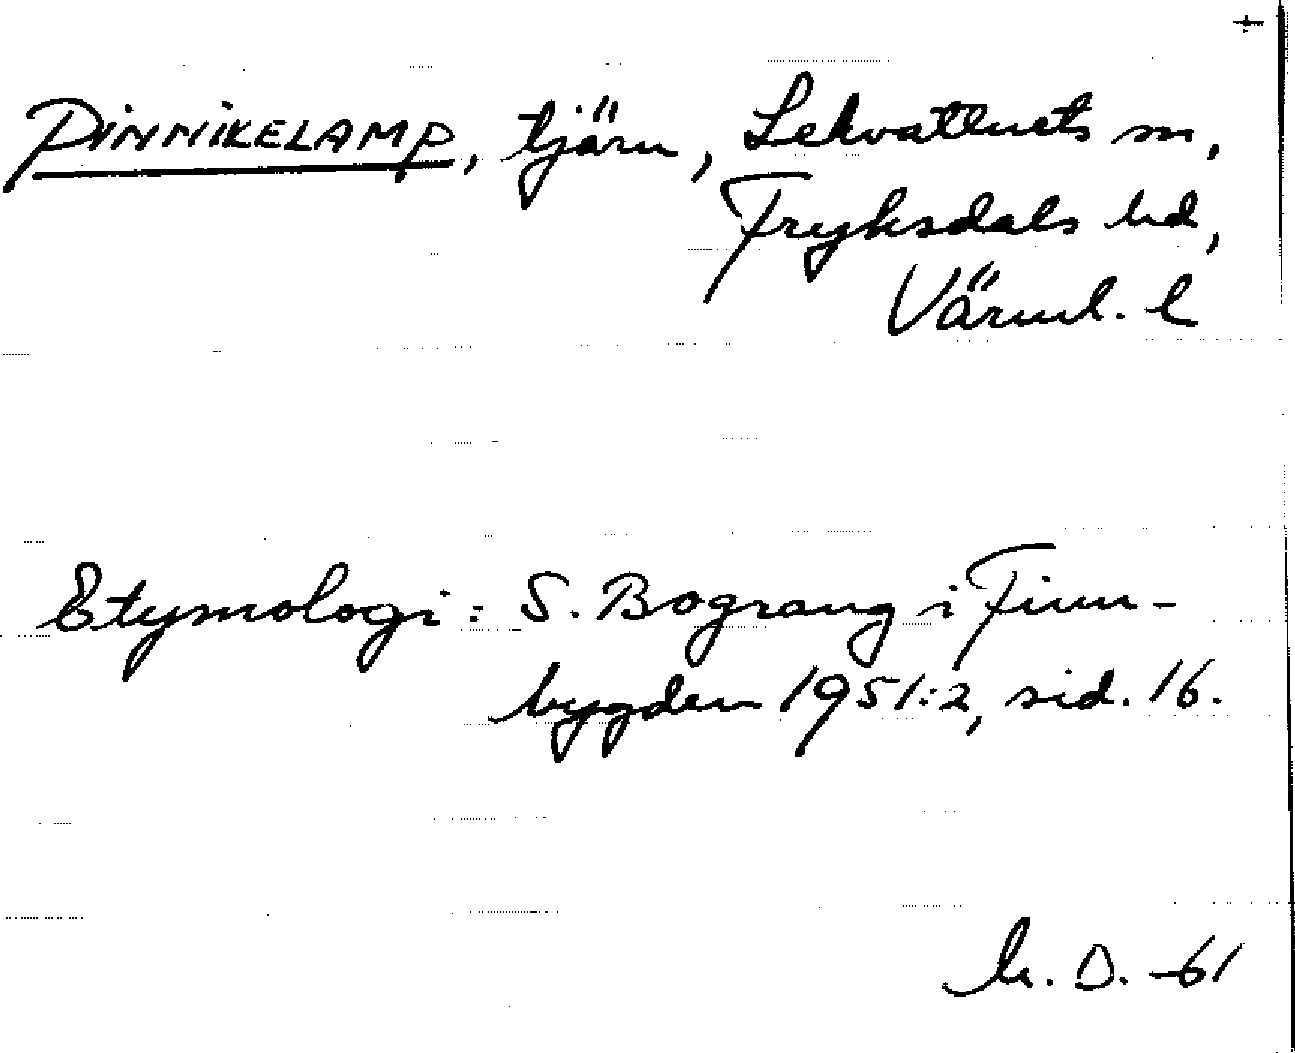 +
PINNIKELAMP, tjärn, Lekvattnets sn,
Fryksdals hd,
Värml. l
Etymologi: S. Bograng i Finn-
bygden 1951:2, sid. 16.
D. -61